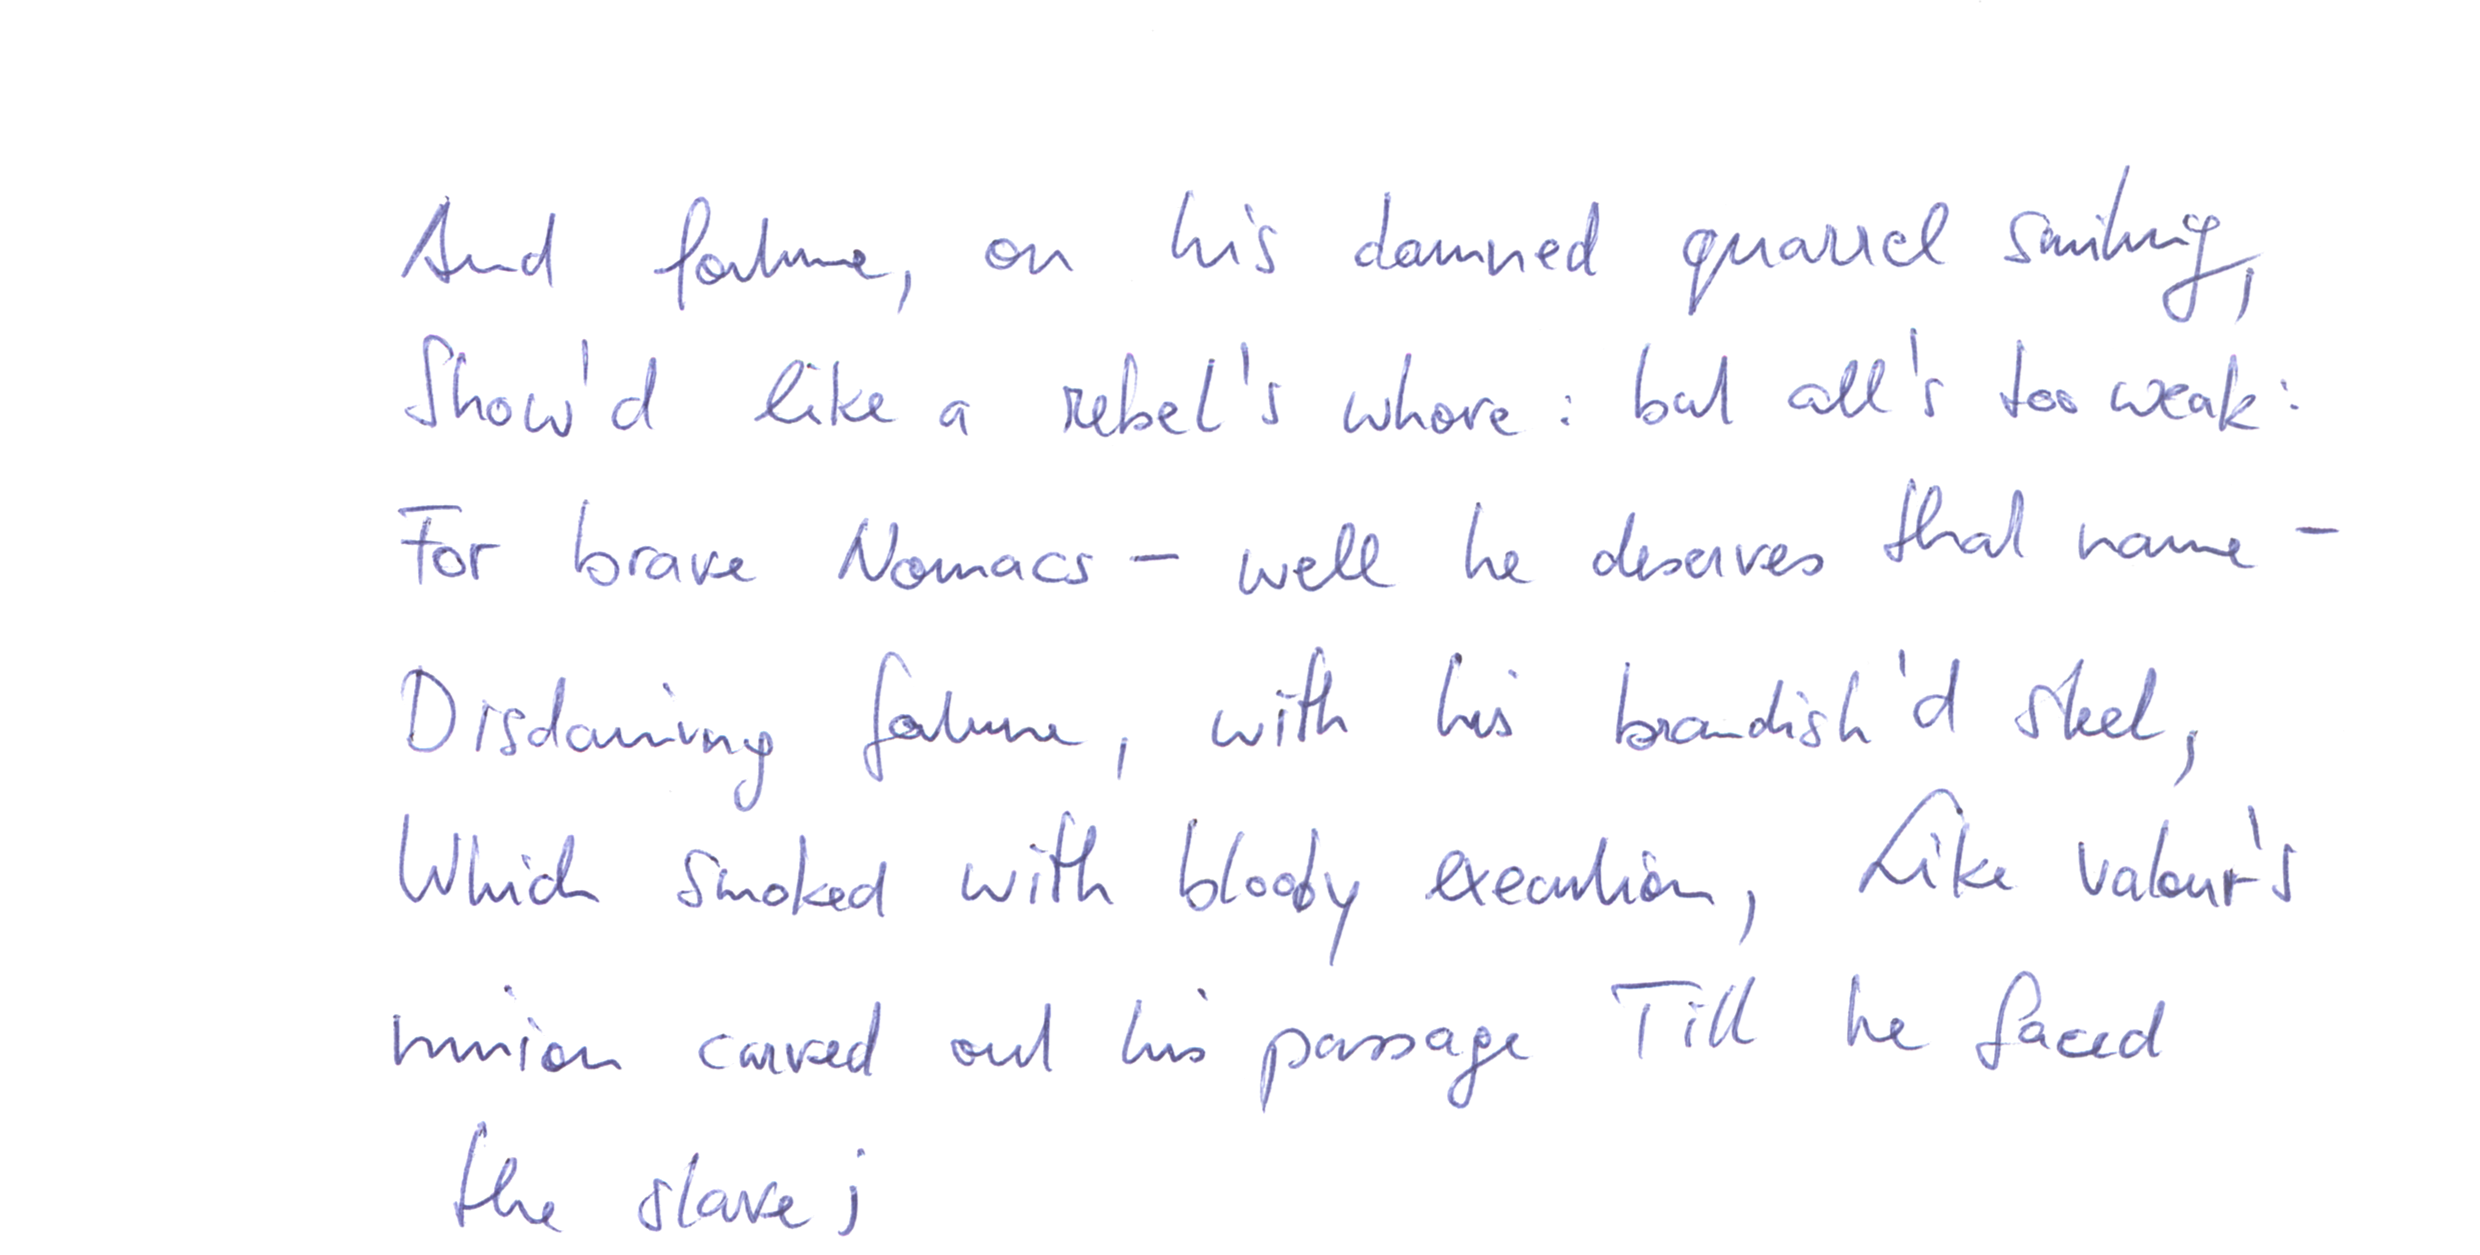 And fortune, on his damned quarrel smiling,
Show'd like a rebel's whore: but all's too weak:
For brave Nomacs - well he deserves that name -
Disdaining fortune, with his brandish'd steel,
Which smoked with bloody execution, Like valour's
minion carved out his passage Till he faced
the slave;